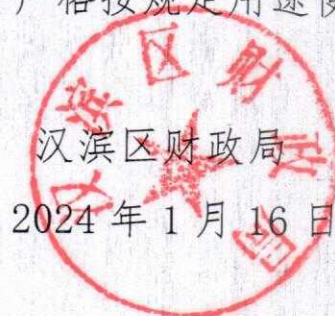 严格按规定用途使
汉滨区财政局
2024年1月16日
汉滨区财政局